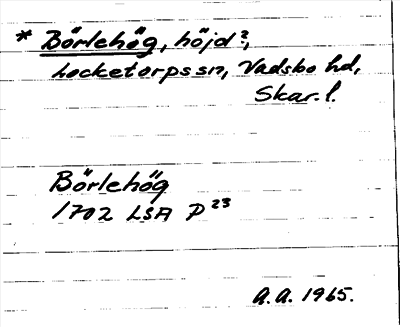 * Börlehög, höjd?,
Locketorps sn, Vadsbo hd,
Skar. l.
Börlehög
1702 LSA P 23
A.A. 1965.